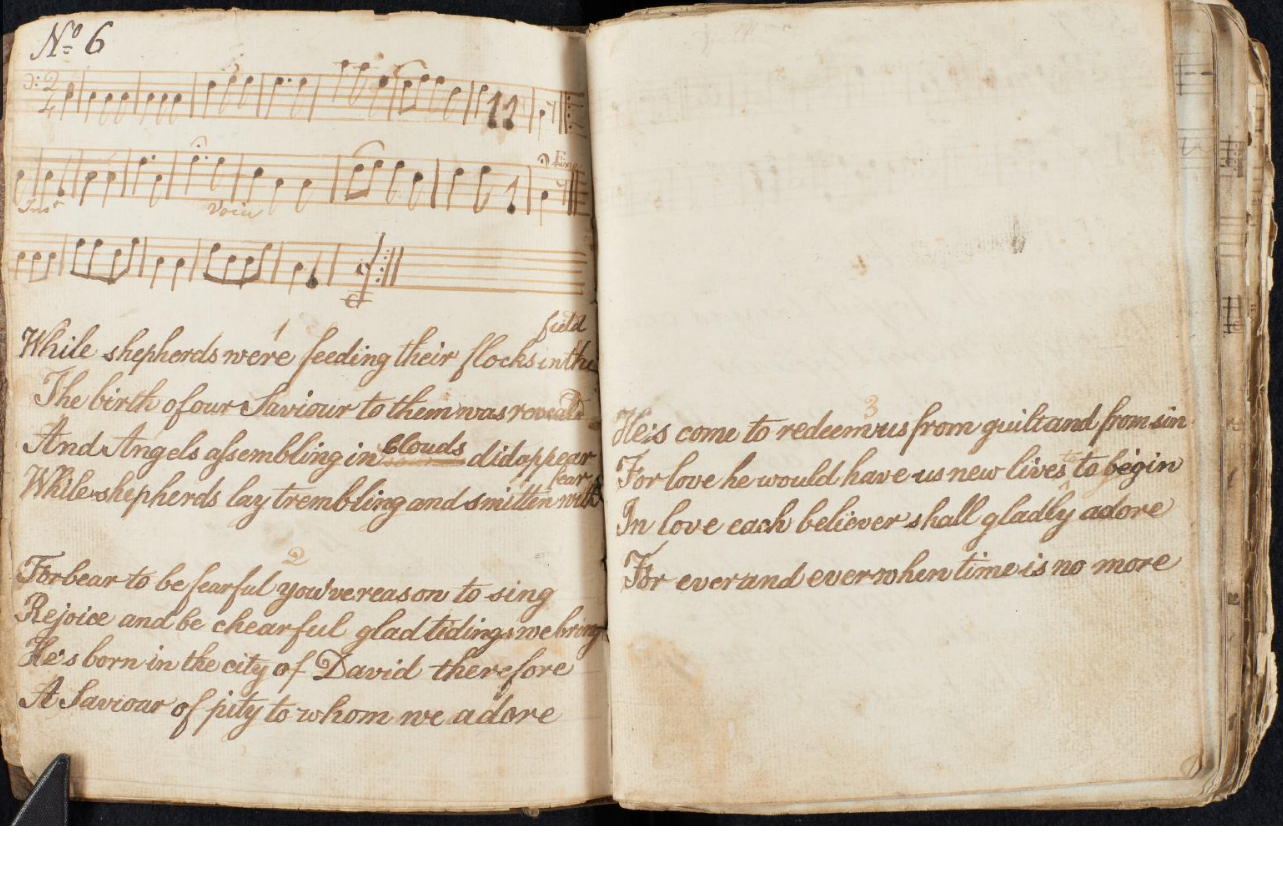 No 6
Fine
Inst Voice
1
While shepherds were feeding their flocks in the field
The birth of our Saviour to them was roveald
And Angels assembling in clouds did appear
While shepherds lay trembling and smitten with fear
2
Forbear to be fearful you've reason to sing
Rejoice and be chearful glad tidings we bring
He's born in the city of David therefore
A Saviour of pity to whom we adore
3
He's come to redeem us from guilt and from sin
For love he would have us new lives to begin
In love each believer shall gladly adore
For ever and ever when time is no more